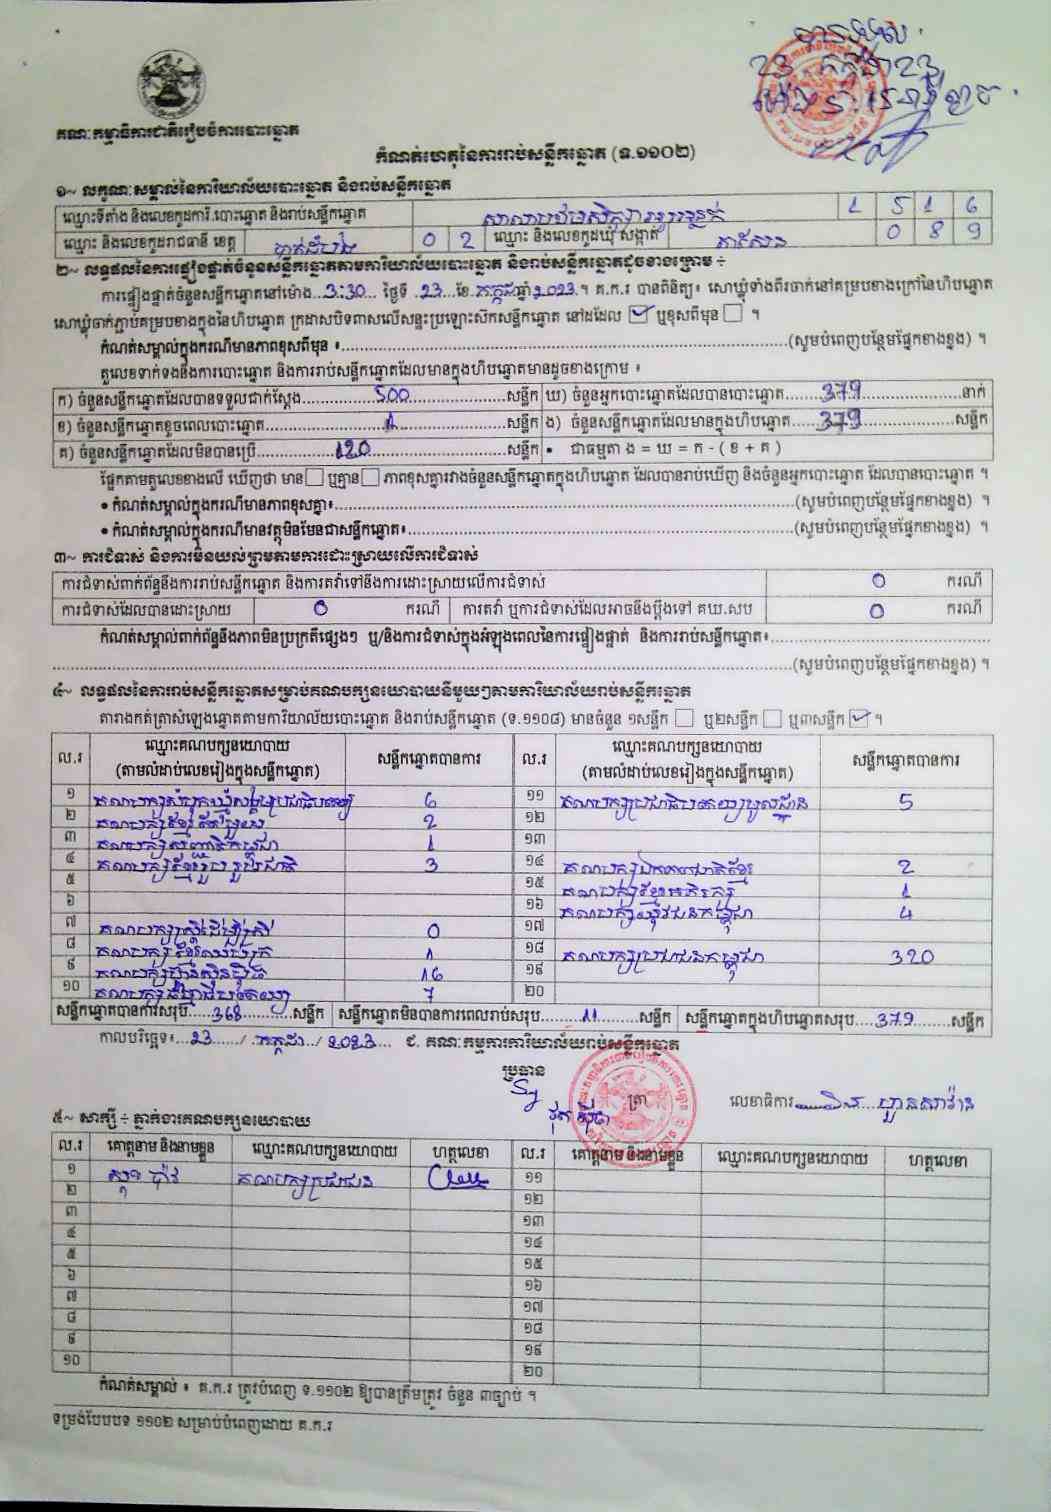 បានទទួល
23 កក្កដា 23
គណៈកម្មាធិការជាតិរៀបចំការបោះឆ្នោត
កំណត់ហេតុនៃការរាប់សន្លឹកឆ្នោត (ទ.១១០២)
១~ លក្ខណៈសម្គាល់នៃការិយាល័យបោះឆ្នោត និងរាប់សន្លឹកឆ្នោត
ឈ្មោះទីតាំង និងលេខកូដការិ.បោះឆ្នោត និងរាប់សន្លឹកឆ្នោត សាលាបឋមសិក្សា 1 5 1 6
ឈ្មោះ និងលេខកូដរាជធានី ខេត្ត បាត់ដំបង 0 2 ឈ្មោះ និងលេខកូដឃុំ សង្កាត់ 0 8 9
២~ លទ្ធផលនៃការផ្ទៀងផ្ទាត់ចំនួនសន្លឹកឆ្នោតតាមការិយាល័យបោះឆ្នោត និងរាប់សន្លឹកឆ្នោតដូចខាងក្រោម ÷
ការផ្ទៀងផ្ទាត់ចំនួនសន្លឹកឆ្នោតនៅម៉ោង...3:30... ថ្ងៃទី..23...ខែ.កក្កដាឆ្នាំ2023.។ គ.ក.រ បានពិនិត្យ៖ សោឃ្លុំទាំងពីរចាក់នៅគម្របខាងក្រៅនៃហិបឆ្នោត
សោឃ្លុំចាក់ភ្ជាប់គម្របខាងក្នុងនៃហិបឆ្នោត ក្រដាសបិទពាសលើសន្ទះប្រឡោះស៊កសន្លឹកឆ្នោត នៅដដែល ☑ ឬខុសពីមុន ☐ ។
កំណត់សម្គាល់ក្នុងករណីមានភាពខុសពីមុន ៖..........(សូមបំពេញបន្ថែមផ្នែកខាងខ្នង) ។
តួលេខទាក់ទងនឹងការបោះឆ្នោត និងការរាប់សន្លឹកឆ្នោតដែលមានក្នុងហិបឆ្នោតមានដូចខាងក្រោម ៖
ក) ចំនួនសន្លឹកឆ្នោតដែលបានទទួលជាក់ស្តែង......500......សន្លឹក ឃ) ចំនួនអ្នកបោះឆ្នោតដែលបានបោះឆ្នោត......379......នាក់
ខ) ចំនួនសន្លឹកឆ្នោតខូចពេលបោះឆ្នោត......1......សន្លឹក ង) ចំនួនសន្លឹកឆ្នោតដែលមានក្នុងហិបឆ្នោត......379......សន្លឹក
គ) ចំនួនសន្លឹកឆ្នោតដែលមិនបានប្រើ......120......សន្លឹក • ជាធម្មតា ង = ឃ = ក - ( ខ + គ )
ផ្អែកតាមតួលេខខាងលើ ឃើញថា មាន ☐ ឬគ្មាន ☐ ភាពខុសគ្នារវាងចំនួនសន្លឹកឆ្នោតក្នុងហិបឆ្នោត ដែលបានរាប់ឃើញ និងចំនួនអ្នកបោះឆ្នោត ដែលបានបោះឆ្នោត ។
• កំណត់សម្គាល់ក្នុងករណីមានភាពខុសគ្នា៖..........(សូមបំពេញបន្ថែមផ្នែកខាងខ្នង) ។
• កំណត់សម្គាល់ក្នុងករណីមានវត្ថុមិនមែនជាសន្លឹកឆ្នោត៖..........(សូមបំពេញបន្ថែមផ្នែកខាងខ្នង) ។
៣~ ការជំទាស់ និងការមិនយល់ព្រមតាមការដោះស្រាយលើការជំទាស់
ការជំទាស់ពាក់ព័ន្ធនឹងការរាប់សន្លឹកឆ្នោត និងការតវ៉ាទៅនឹងការដោះស្រាយលើការជំទាស់ 0 ករណី
ការជំទាស់ដែលបានដោះស្រាយ 0 ករណី ការតវ៉ា ឬការជំទាស់ដែលអាចនឹងប្តឹងទៅ គឃ.សប 0 ករណី
កំណត់សម្គាល់ពាក់ព័ន្ធនឹងភាពមិនប្រក្រតីផ្សេងៗ ឬ/និងការជំទាស់ក្នុងអំឡុងពេលនៃការផ្ទៀងផ្ទាត់ និងការរាប់សន្លឹកឆ្នោត៖..........
..........(សូមបំពេញបន្ថែមផ្នែកខាងខ្នង) ។
៤~ លទ្ធផលនៃការរាប់សន្លឹកឆ្នោតសម្រាប់គណបក្សនយោបាយនីមួយៗតាមការិយាល័យរាប់សន្លឹកឆ្នោត
តារាងកត់ត្រាសំឡេងឆ្នោតតាមការិយាល័យបោះឆ្នោត និងរាប់សន្លឹកឆ្នោត (ទ.១១០៨) មានចំនួន ១សន្លឹក ☐ ឬ២សន្លឹក ☐ ឬ៣សន្លឹក ☑ ។
ល.រ ឈ្មោះគណបក្សនយោបាយ (តាមលំដាប់លេខរៀងក្នុងសន្លឹកឆ្នោត) សន្លឹកឆ្នោតបានការ ល.រ ឈ្មោះគណបក្សនយោបាយ (តាមលំដាប់លេខរៀងក្នុងសន្លឹកឆ្នោត) សន្លឹកឆ្នោតបានការ
១ គណបក្សសំបុកឃ្មុំសង្គមប្រជាធិបតេយ្យ 6 ១១ គណបក្សប្រជាធិបតេយ្យមូលដ្ឋាន 5
២ គណបក្សខ្មែរ 2 ១២
៣ គណបក្សសញ្ជាតិកម្ពុជា 1 ១៣
៤ គណបក្សខ្មែររួបរួមជាតិ 3 ១៤ គណបក្សឯកភាពជាតិខ្មែរ 2
៥ ១៥ គណបក្សខ្មែរអភិរក្ស 1
៦ ១៦ គណបក្សយុវជនកម្ពុជា 4
៧ គណបក្សស្ត្រីដើម្បីស្ត្រី 0 ១៧
៨ គណបក្សខ្មែរឈប់ក្រ 1 ១៨ គណបក្សប្រជាជនកម្ពុជា 320
៩ គណបក្សហ៊្វុនស៊ិនប៉ិច 16 ១៩
១០ គណបក្សធម្មាធិបតេយ្យ 7 ២០
សន្លឹកឆ្នោតបានការសរុប...368...សន្លឹក សន្លឹកឆ្នោតមិនបានការពេលរាប់សរុប...11...សន្លឹក សន្លឹកឆ្នោតក្នុងហិបឆ្នោតសរុប...379...សន្លឹក
កាលបរិច្ឆេទ៖...23..../ .កក្កដា../ 2023.... ជ. គណៈកម្មការការិយាល័យរាប់សន្លឹកឆ្នោត
ប្រធាន
ត្រា លេខាធិការ
៥~ សាក្សី ÷ ភ្នាក់ងារគណបក្សនយោបាយ
ល.រ គោត្តនាម និងនាមខ្លួន ឈ្មោះគណបក្សនយោបាយ ហត្ថលេខា ល.រ គោត្តនាម និងនាមខ្លួន ឈ្មោះគណបក្សនយោបាយ ហត្ថលេខា
១ គណបក្សប្រជាជន ១១
២ ១២
៣ ១៣
៤ ១៤
៥ ១៥
៦ ១៦
៧ ១៧
៨ ១៨
៩ ១៩
១០ ២០
កំណត់សម្គាល់ ៖ គ.ក.រ ត្រូវបំពេញ ទ.១១០២ ឱ្យបានត្រឹមត្រូវ ចំនួន ៣ច្បាប់ ។
ទម្រង់បែបបទ ១១០២ សម្រាប់បំពេញដោយ គ.ក.រ